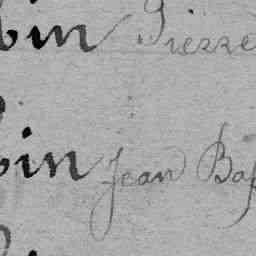 bin Pierre
bin Jean Bap